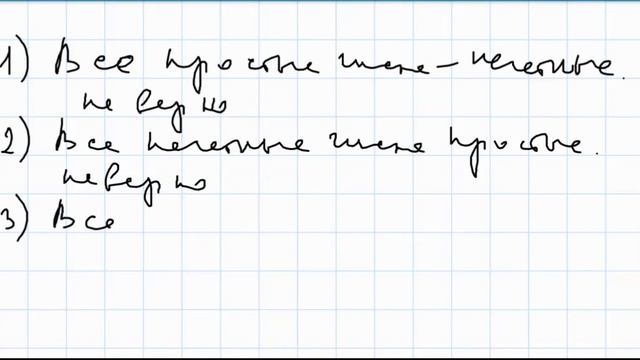 1) Все простые числа – нечетные.
неверно
2) Все нечетные числа простые.
неверно
3) Все